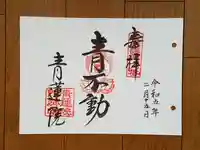 奉拝
令和五年
二月十五日
青不動
青蓮院